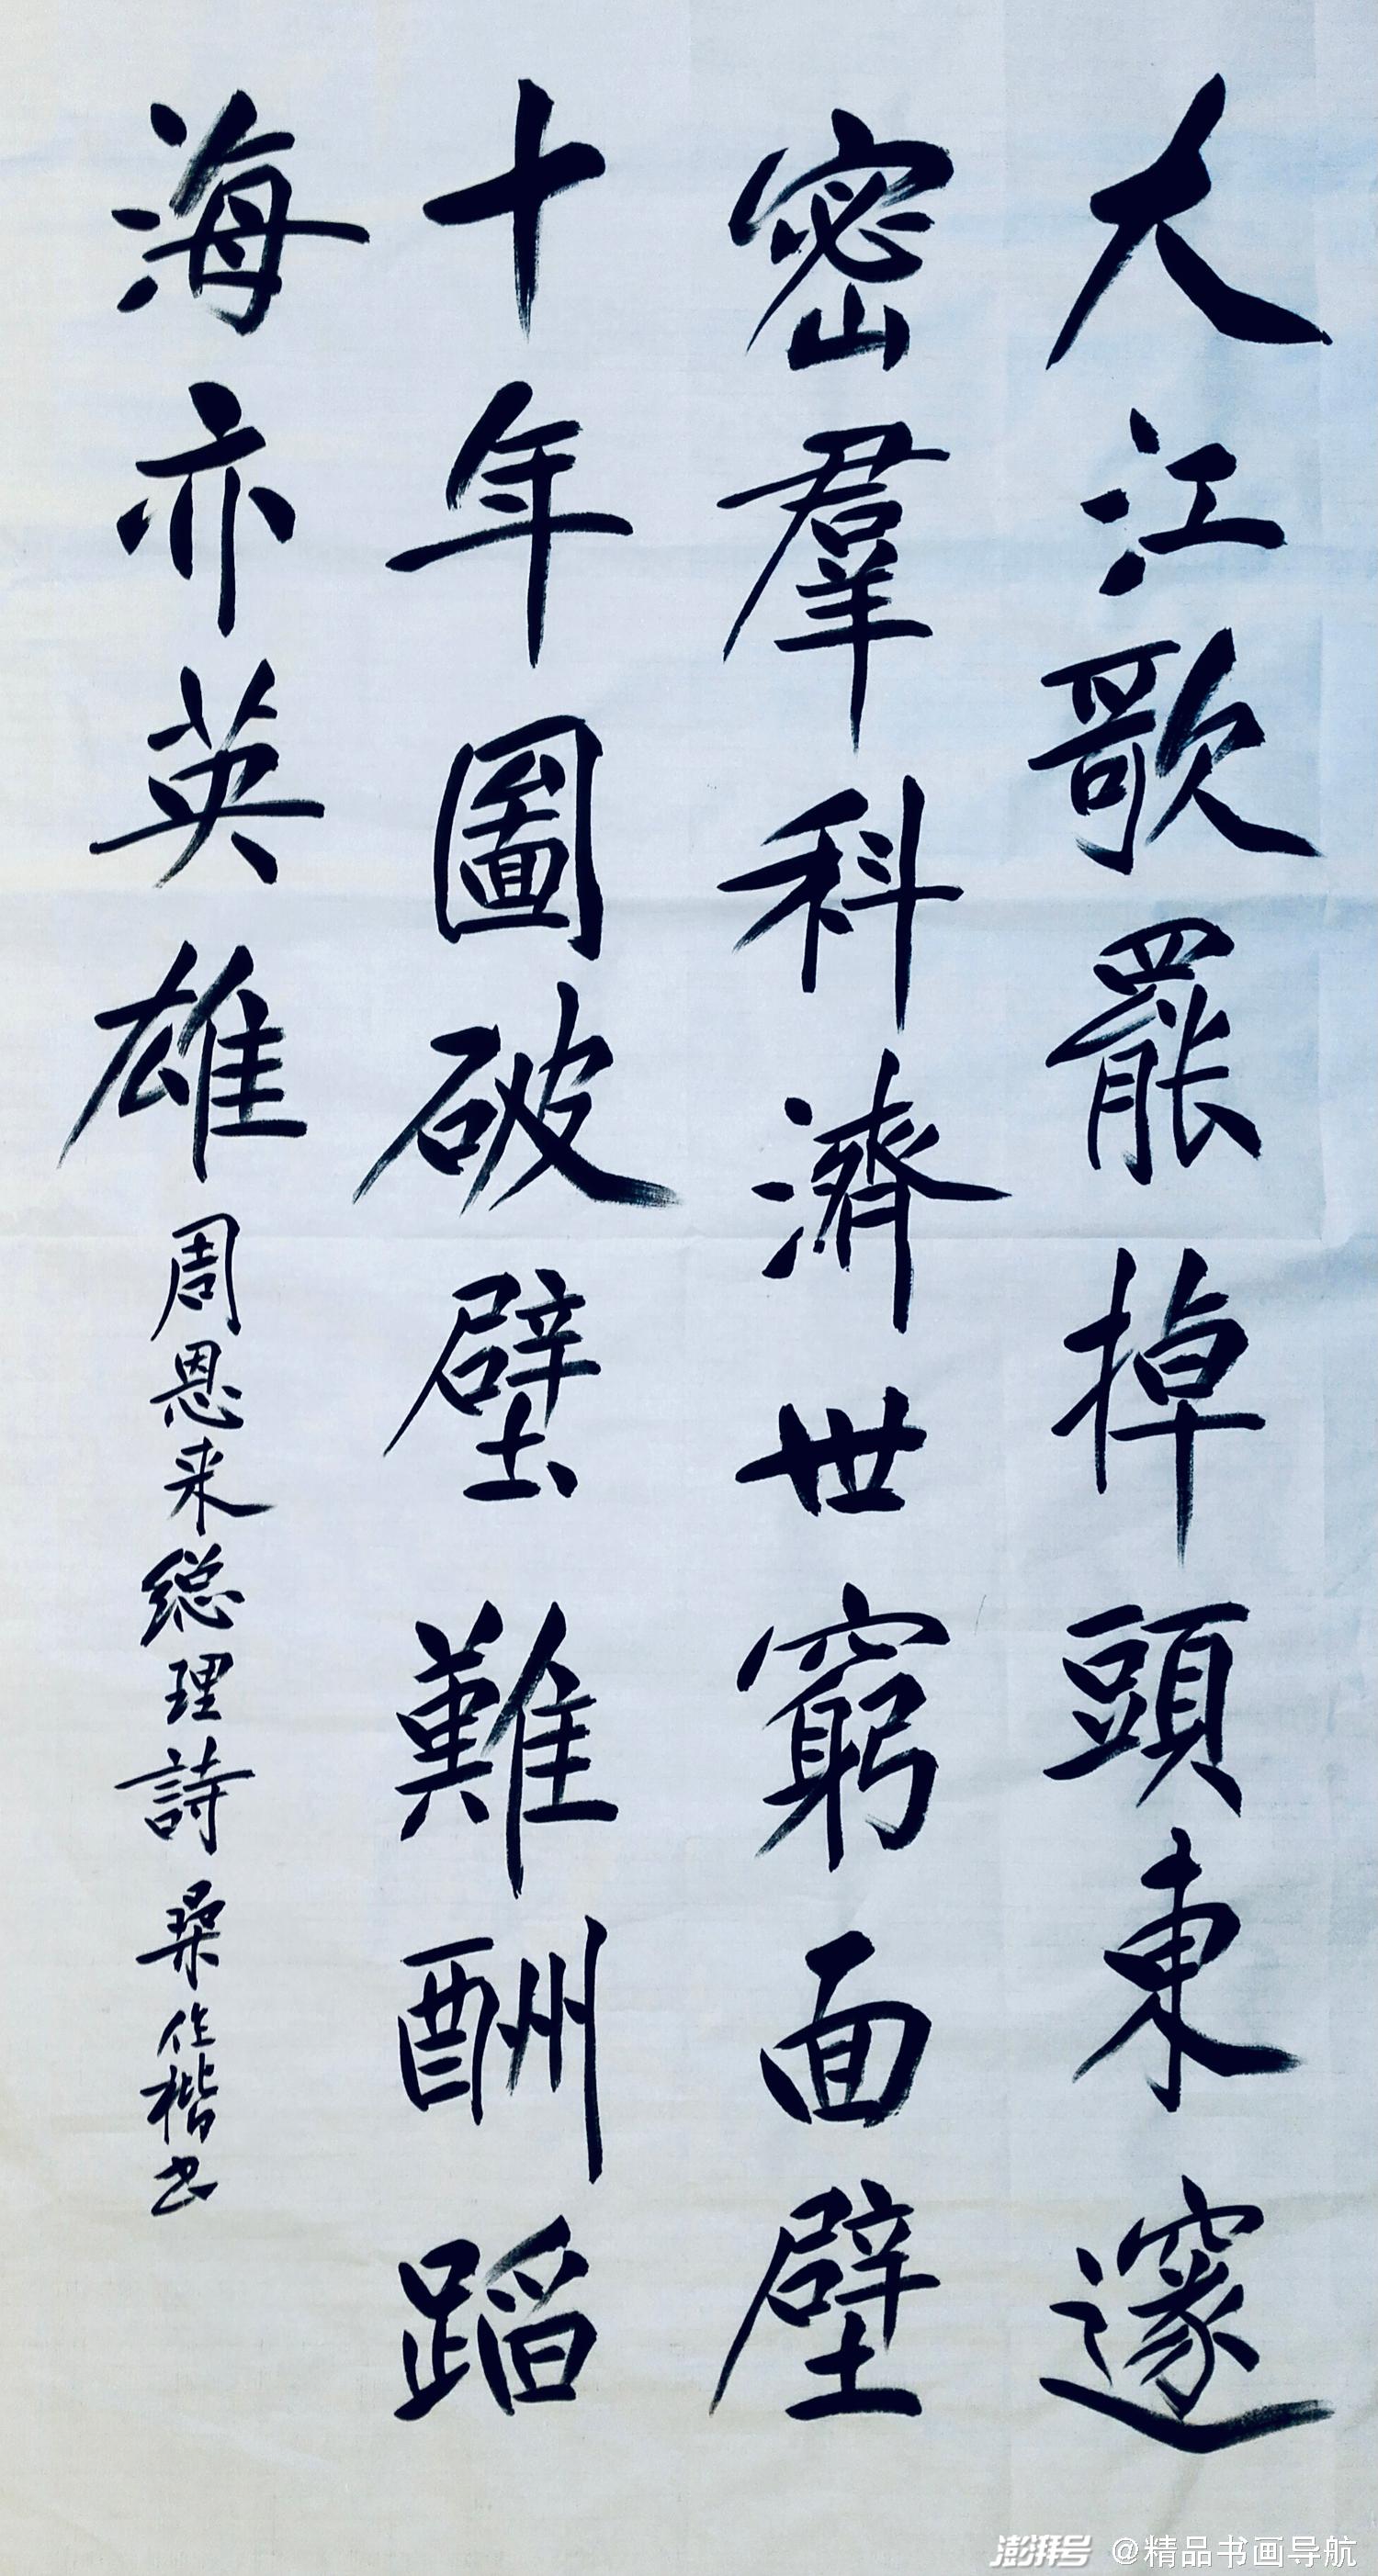 大江歌罷掉頭東邃
密羣科濟世窮面壁
十年圖破壁難酬蹈
海亦英雄 周恩来総理詩 桑作楷书
澎湃号 @精品书画导航